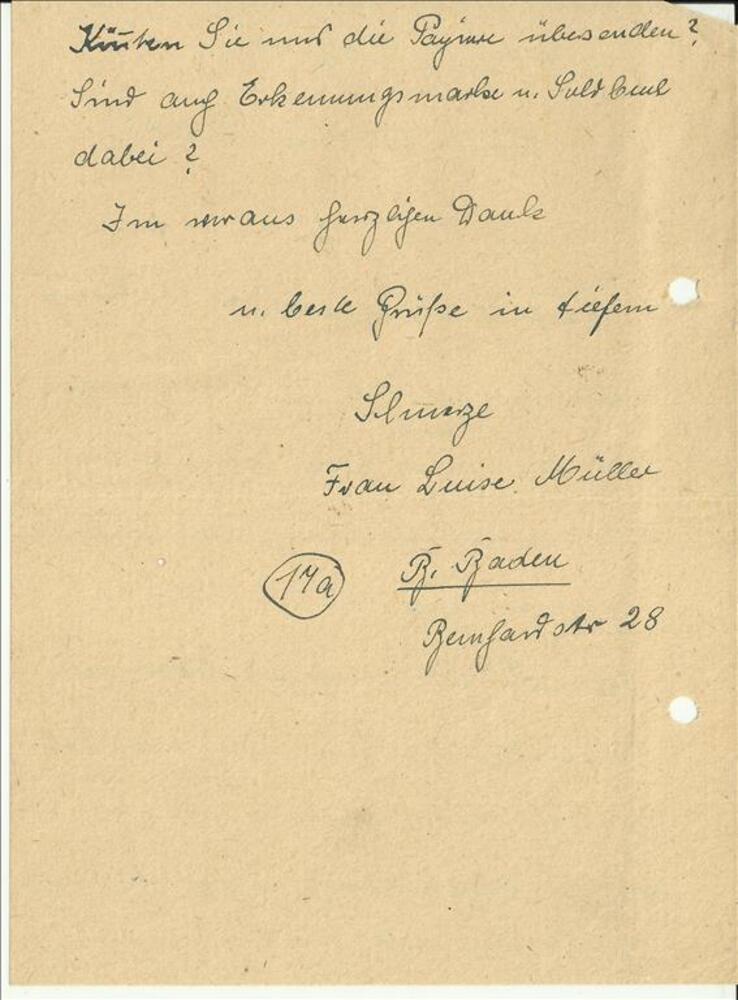 Könten Sie uns die Papiere übesenden?
Sind auch Erkennungsmarke u. Soldbuch
dabei?
Im voraus herzlichen Dank
u. beste Grüße in tiefem
Schmerze
Frau Luise Müller
17a B. Baden
Bernhardstr 28